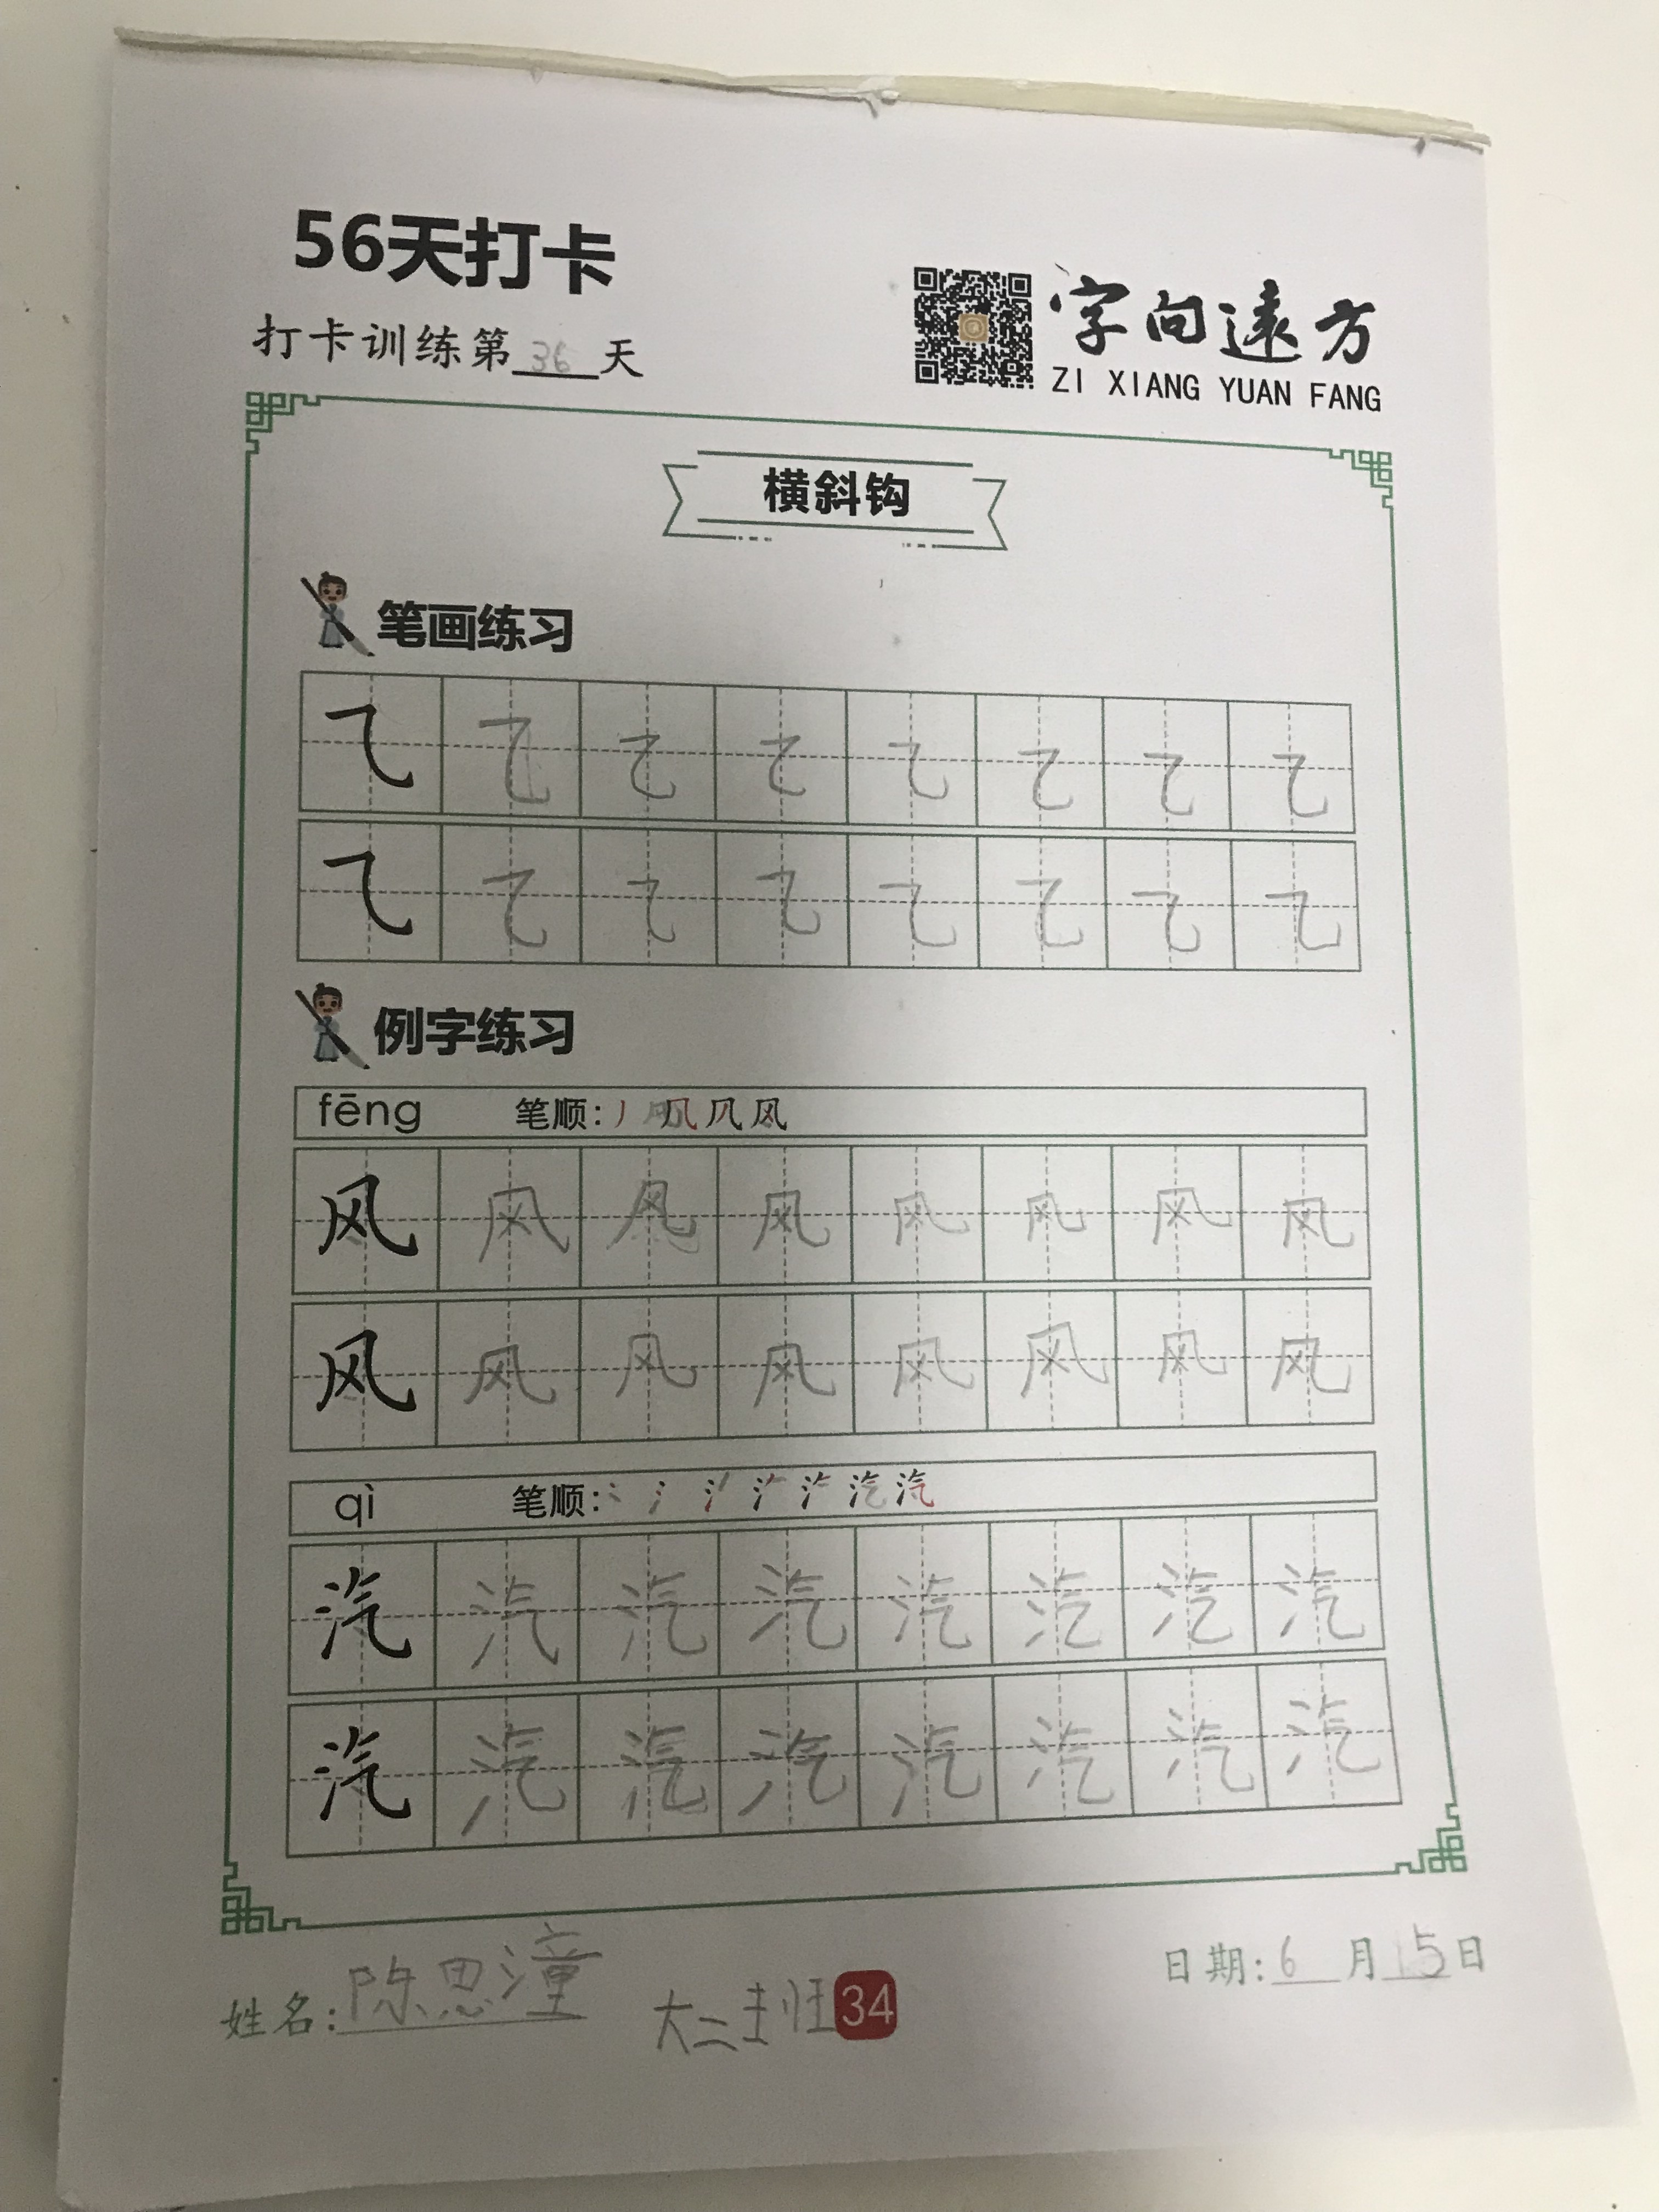 56天打卡
打卡训练第36天
字向遠方
ZI XIANG YUAN FANG
横斜钩
笔画练习
⺄ ⺄ ⺄ ⺄ ⺄ ⺄ ⺄ ⺄
⺄ ⺄ ⺄ ⺄ ⺄ ⺄ ⺄ ⺄
例字练习
fēng 笔顺: 丿 ⺄ 几 风
风 风 风 风 风 风 风 风
风 风 风 风 风 风 风 风
qì 笔顺: 汽
汽 汽 汽 汽 汽 汽 汽 汽
汽 汽 汽 汽 汽 汽 汽 汽
姓名: 陈思潼 大二班 34 日期: 6 月 15 日